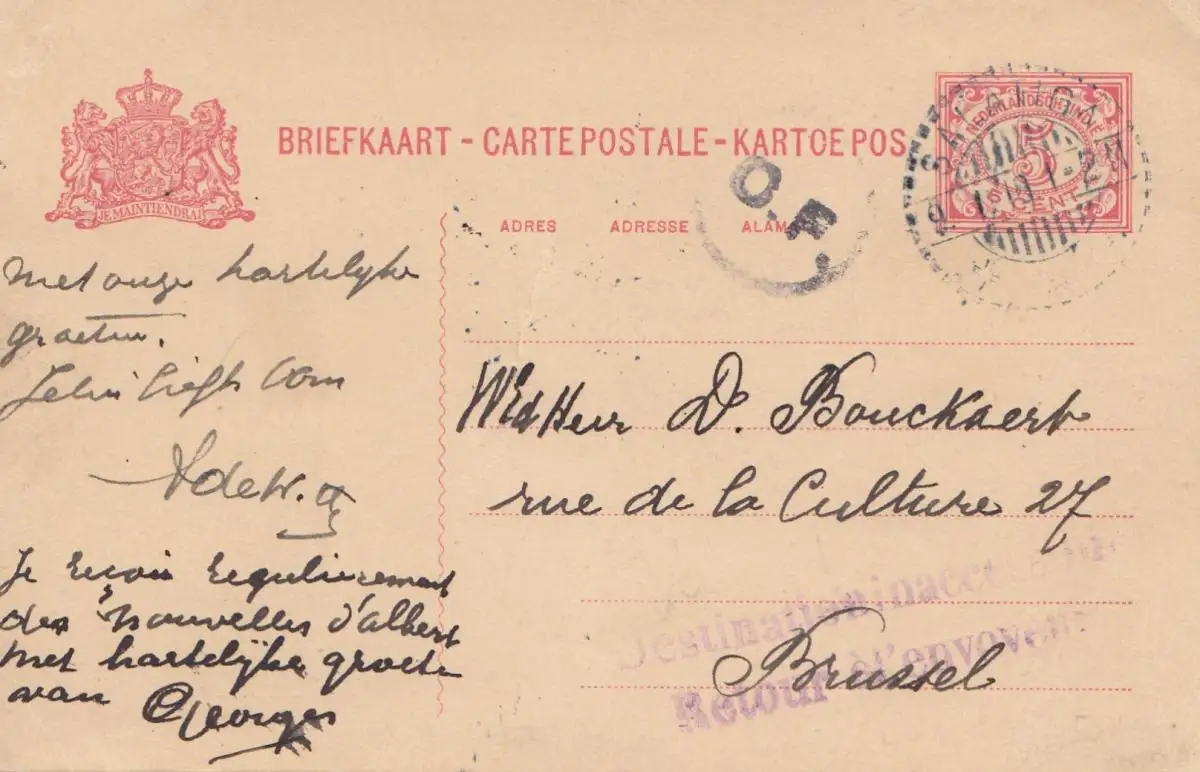 JE MAINTIENDRAI
BRIEFKAART - CARTE POSTALE - KARTOE POS
NEDERLANDSCH-INDIE
5
CENT
O.F.
ADRES ADRESSE ALAMAT
Met onze hartelijke
groeten.
Je reçois regulièrement
des nouvelles d'albert
met hartelijke groete
van Georges
WEdHeer D. Bouckaert
rue de la Culture 27
Brussel
Destination inaccessible
Retour à l'envoyeur